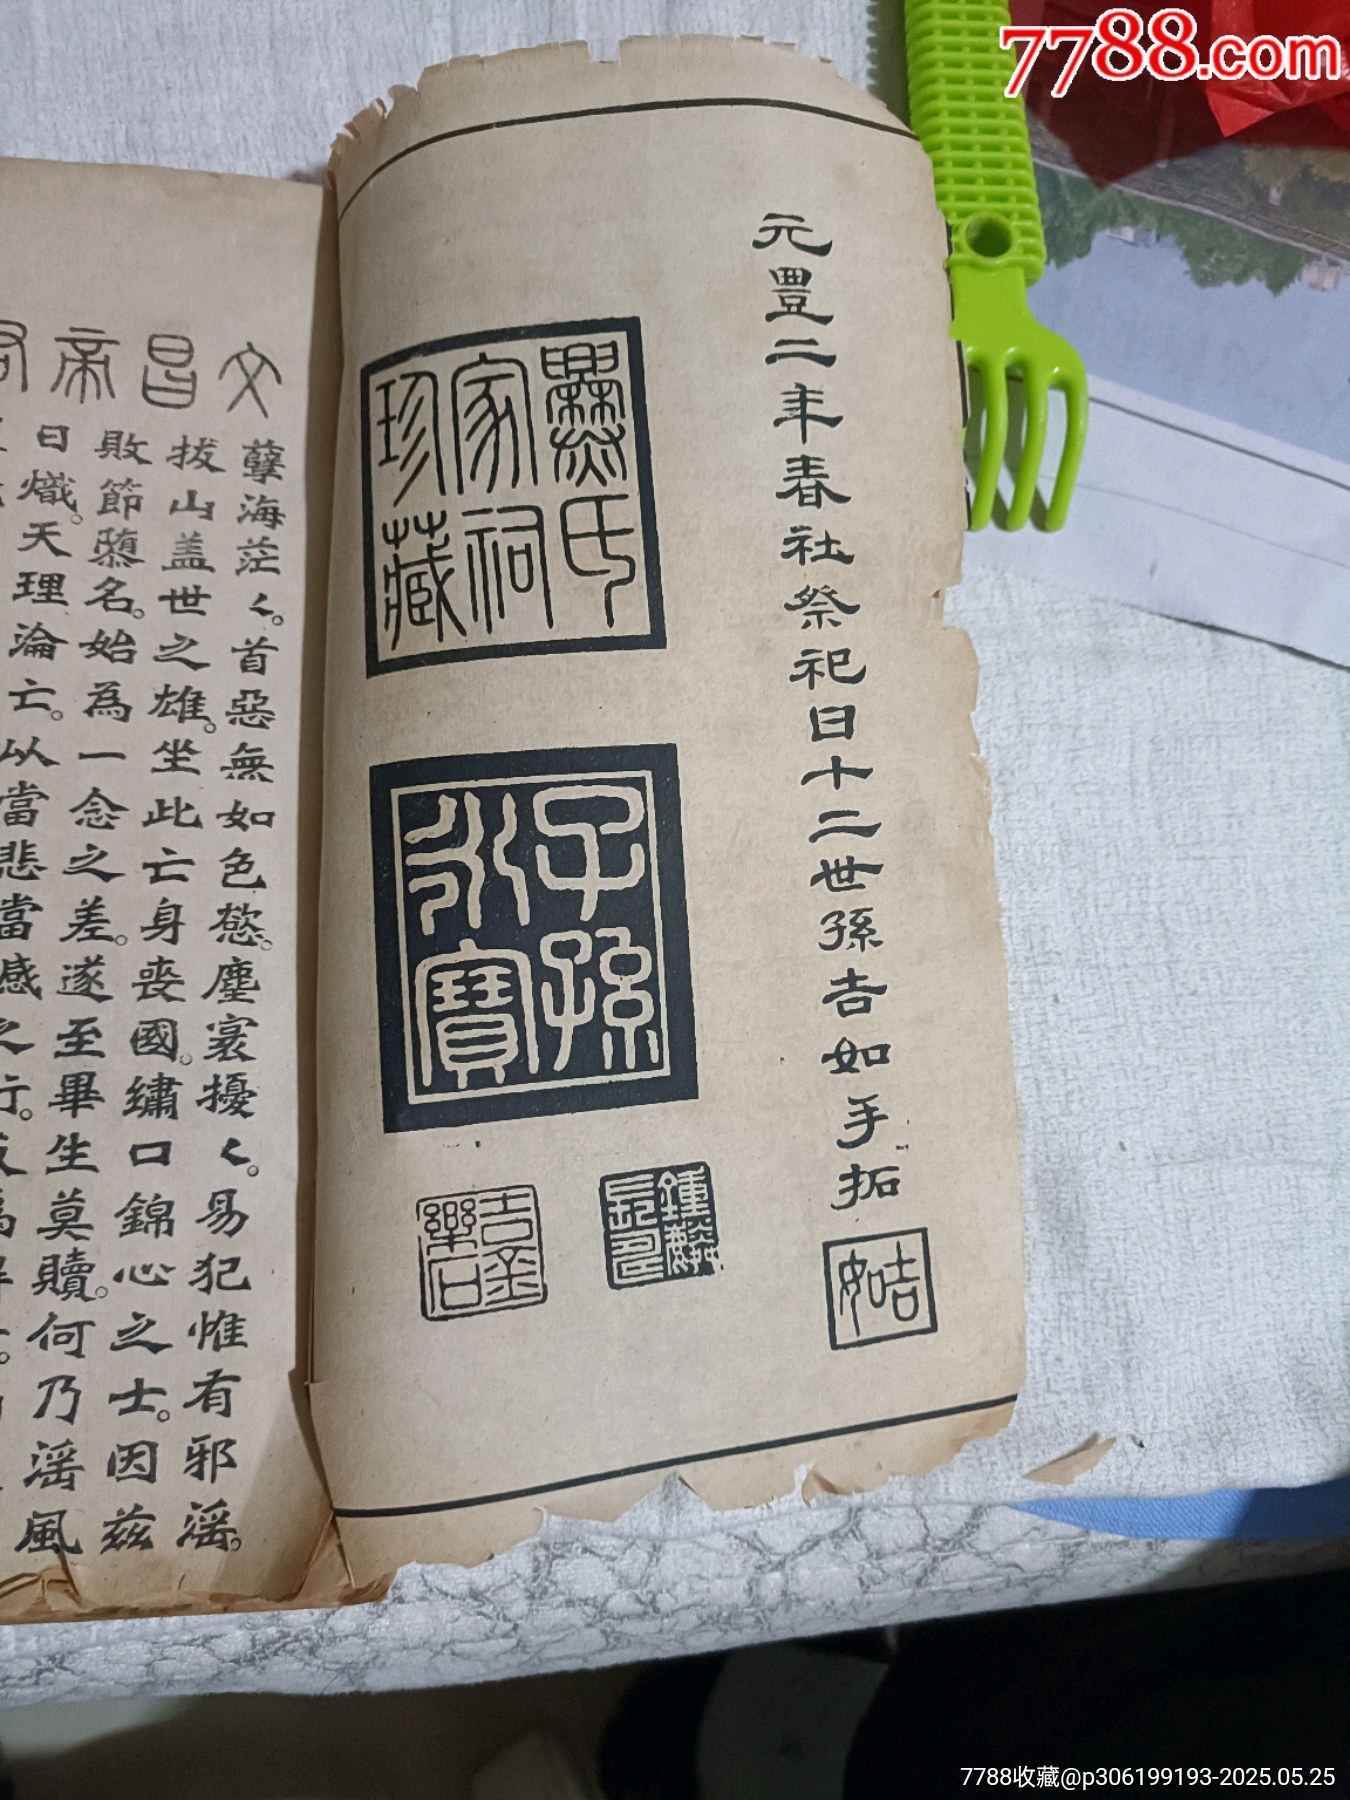 7788.com
元豊二年春社祭祀日十二世孫吉如手拓
吉如
爨氏
家祠
珍藏
子孫
永寶
吉金
樂石
文昌帝
孽海茫〻。首惡無如色慾。塵寰擾〻。易犯惟有邪淫。
拔山蓋世之雄。坐此亡身喪國。繡口錦心之士。因茲
敗節隳名。始為一念之差。遂至畢生莫贖。何乃淫風
日熾。天理淪亡。以當悲當
7788收藏@p306199193-2025.05.25